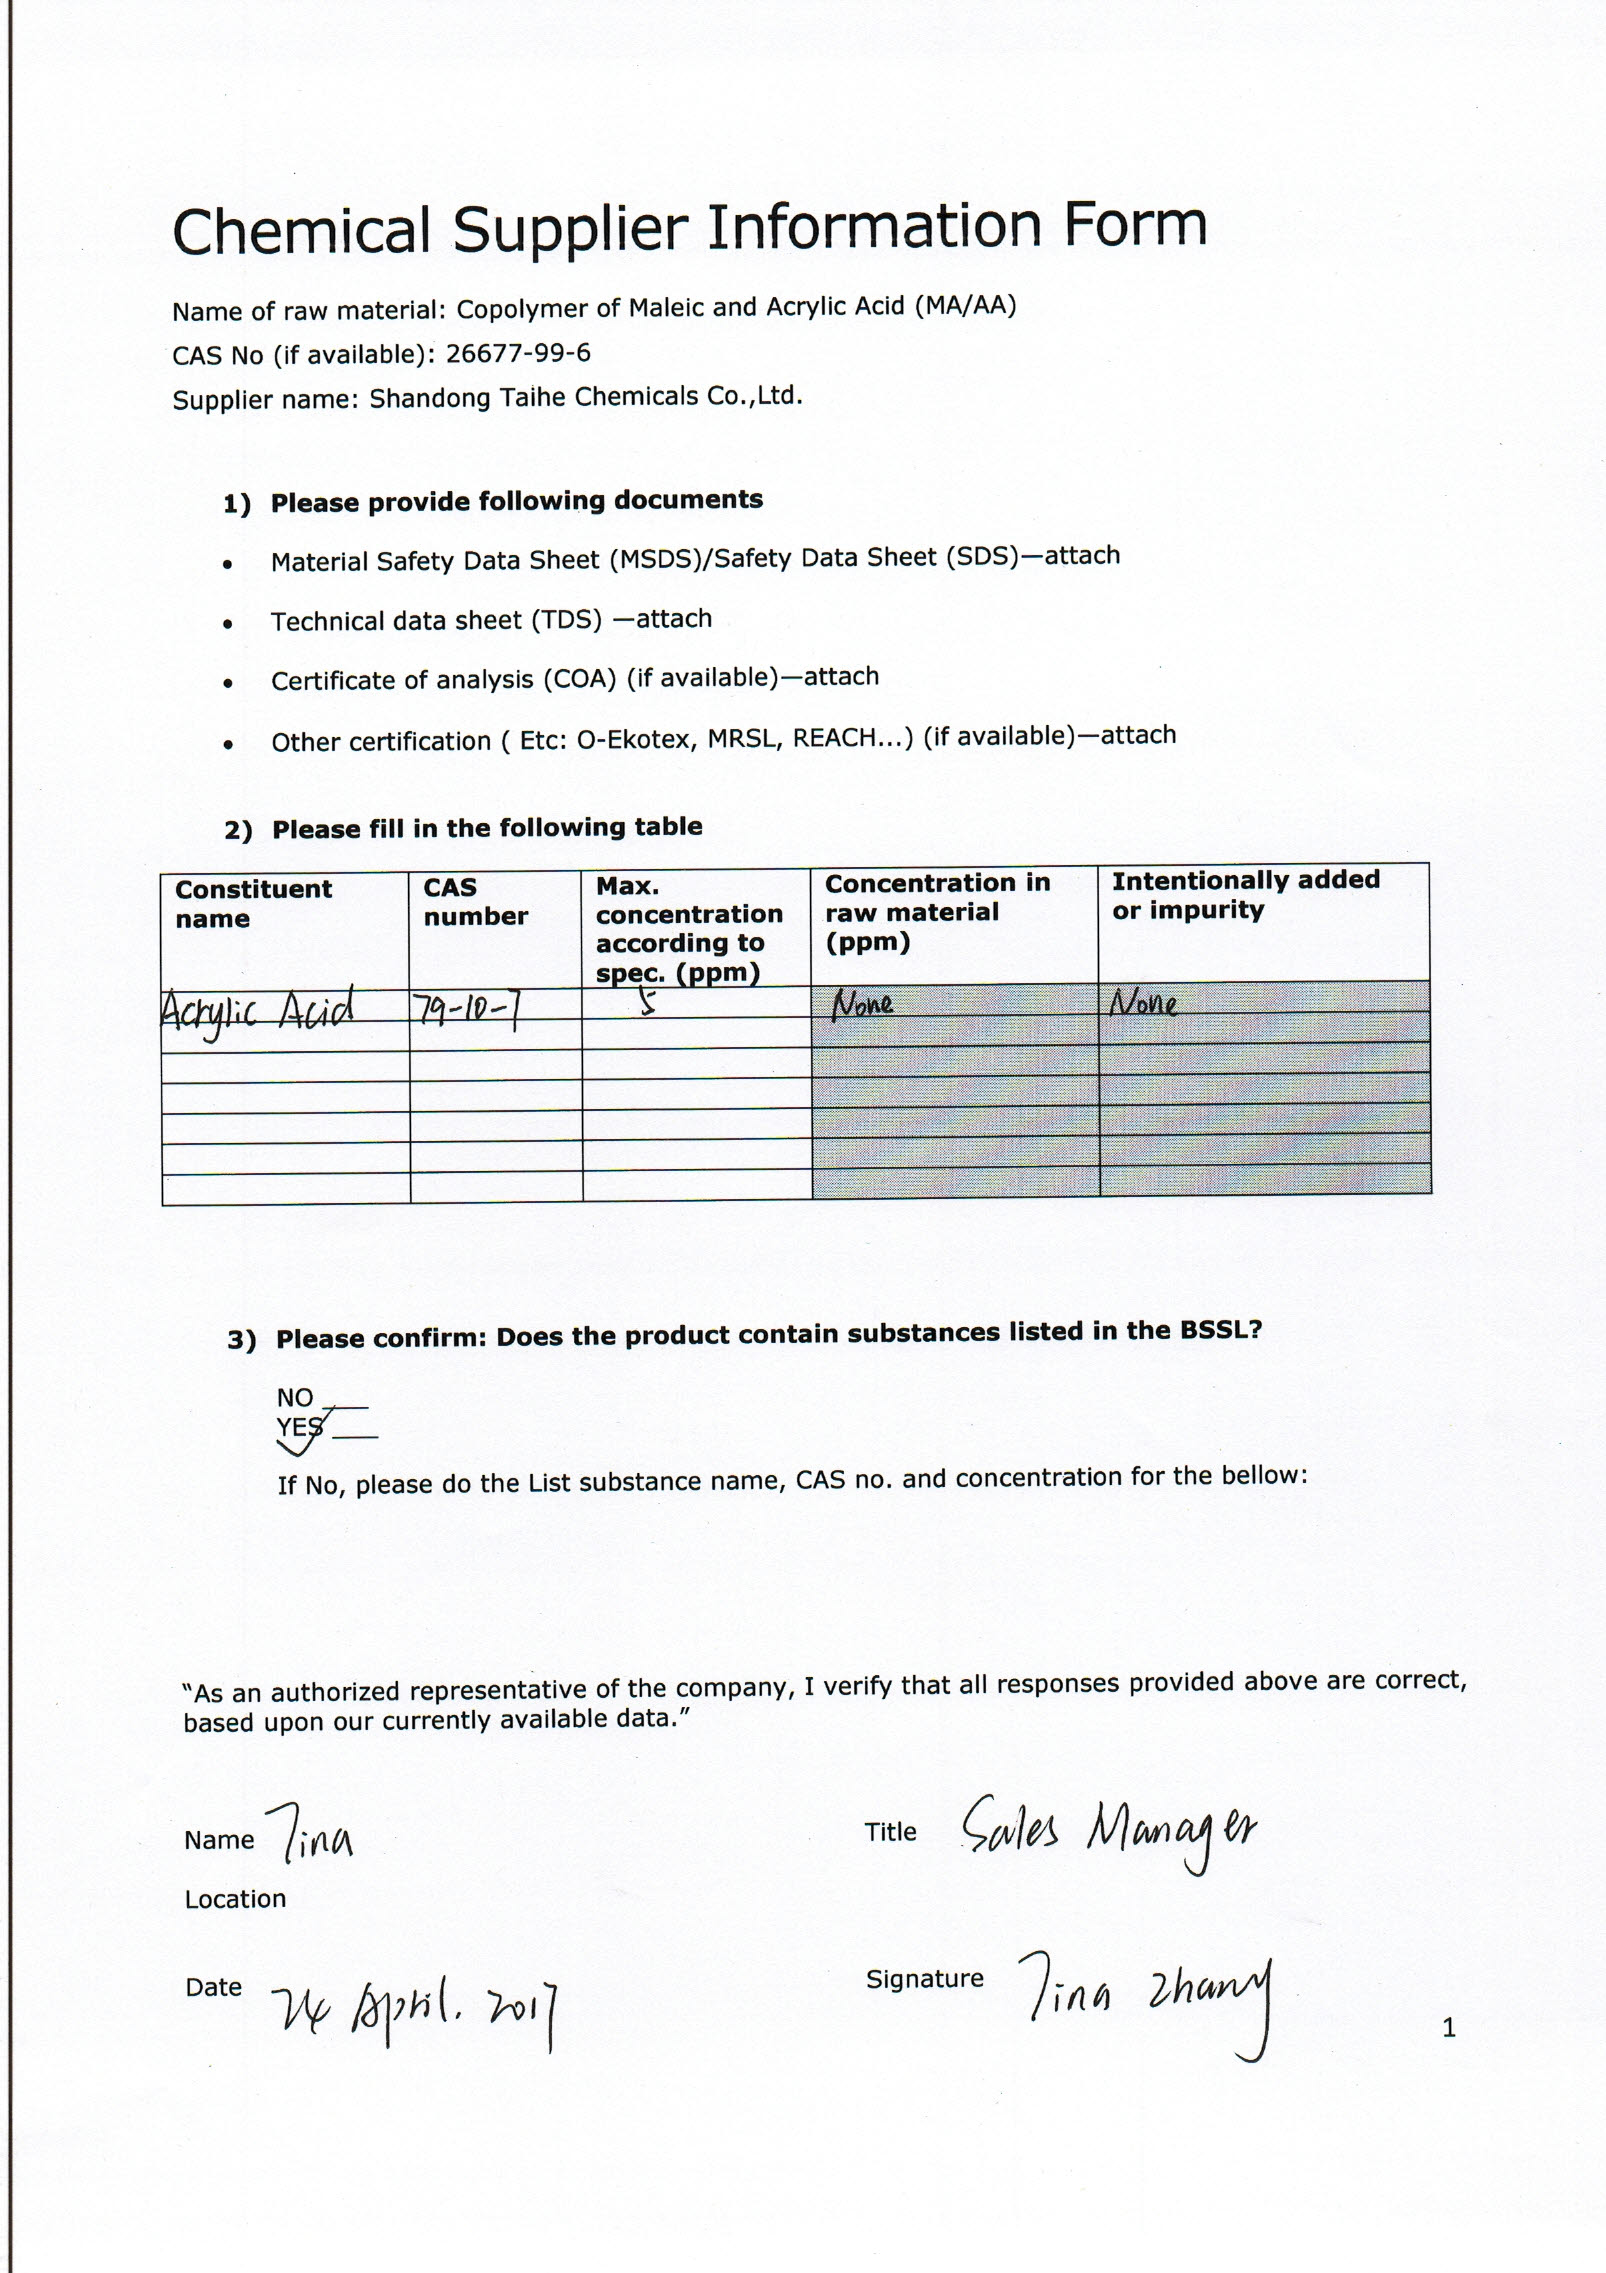 Chemical Supplier Information Form
Name of raw material: Copolymer of Maleic and Acrylic Acid (MA/AA)
CAS No (if available): 26677-99-6
Supplier name: Shandong Taihe Chemicals Co.,Ltd.
1) Please provide following documents
• Material Safety Data Sheet (MSDS)/Safety Data Sheet (SDS)—attach
• Technical data sheet (TDS) —attach
• Certificate of analysis (COA) (if available)—attach
• Other certification ( Etc: O-Ekotex, MRSL, REACH...) (if available)—attach
2) Please fill in the following table
Constituent name CAS number Max. concentration according to spec. (ppm) Concentration in raw material (ppm) Intentionally added or impurity
Acrylic Acid 79-10-7 5 None None
3) Please confirm: Does the product contain substances listed in the BSSL?
NO ___
YES ___
If No, please do the List substance name, CAS no. and concentration for the bellow:
“As an authorized representative of the company, I verify that all responses provided above are correct,
based upon our currently available data.”
Name Tina Title Sales Manager
Location
Date 24 April. 2017 Signature Tina Zhang
1